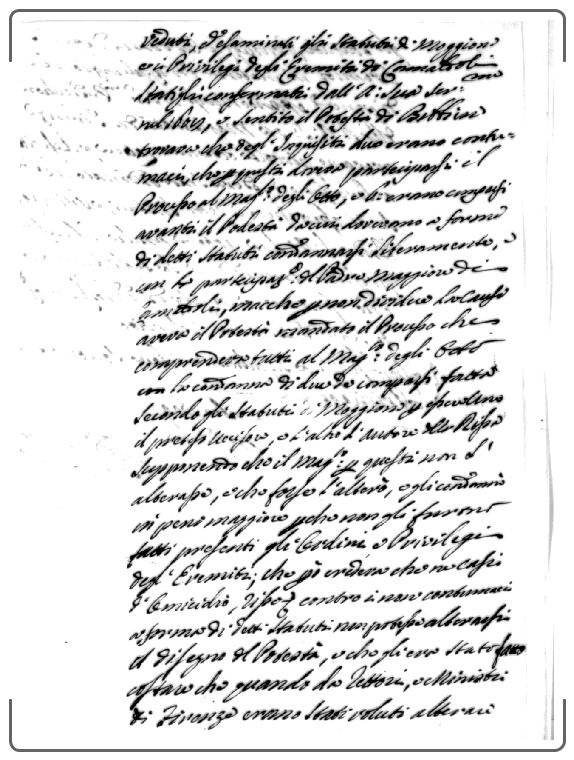 veduti, ed esaminati gli Statuti di Moggiona
e i Privilegi degli Eremiti di Camaldoli
confermati dall' A: Sua Ser:
e sentito il Potestà di Bibbiena
trovava che degl' Inquisiti due erano contu-
maci, che doveva participarsi il
Processo al Mag:º degli Otto, e erano comparsi
avanti il Podestà dovevano a forma
di detti Statuti condannarsi liberamente, e
con la participaz:e del Padre Maggiore di
Camaldoli, ma che p non dividere la Causa
aveva il Potestà mandato il Processo che
comprendeva tutti al Mag:º degli Otto
con la condanna di due de comparsi fatta
secondo gli Statuti di Moggiona p esser uno
il preteso Uccisore, e l'altro l'autore della Rissa
supponendo che il Mag:º p questi non l'
alterasse, e che forse l'alterò, e gli condannò
in pena maggiore pche non gli furono
fatti presenti gli Ordini, e Privilegi
degl' Eremiti; che però credeva che ne casi
d' Omicidio, contro i non contumaci
a forma di detti Statuti non potesse alterarsi
il disegno del Potestà, e che gli era stato fatto
costare che quando da Rettori, e Ministri
di Firenze erano stati voluti alterare